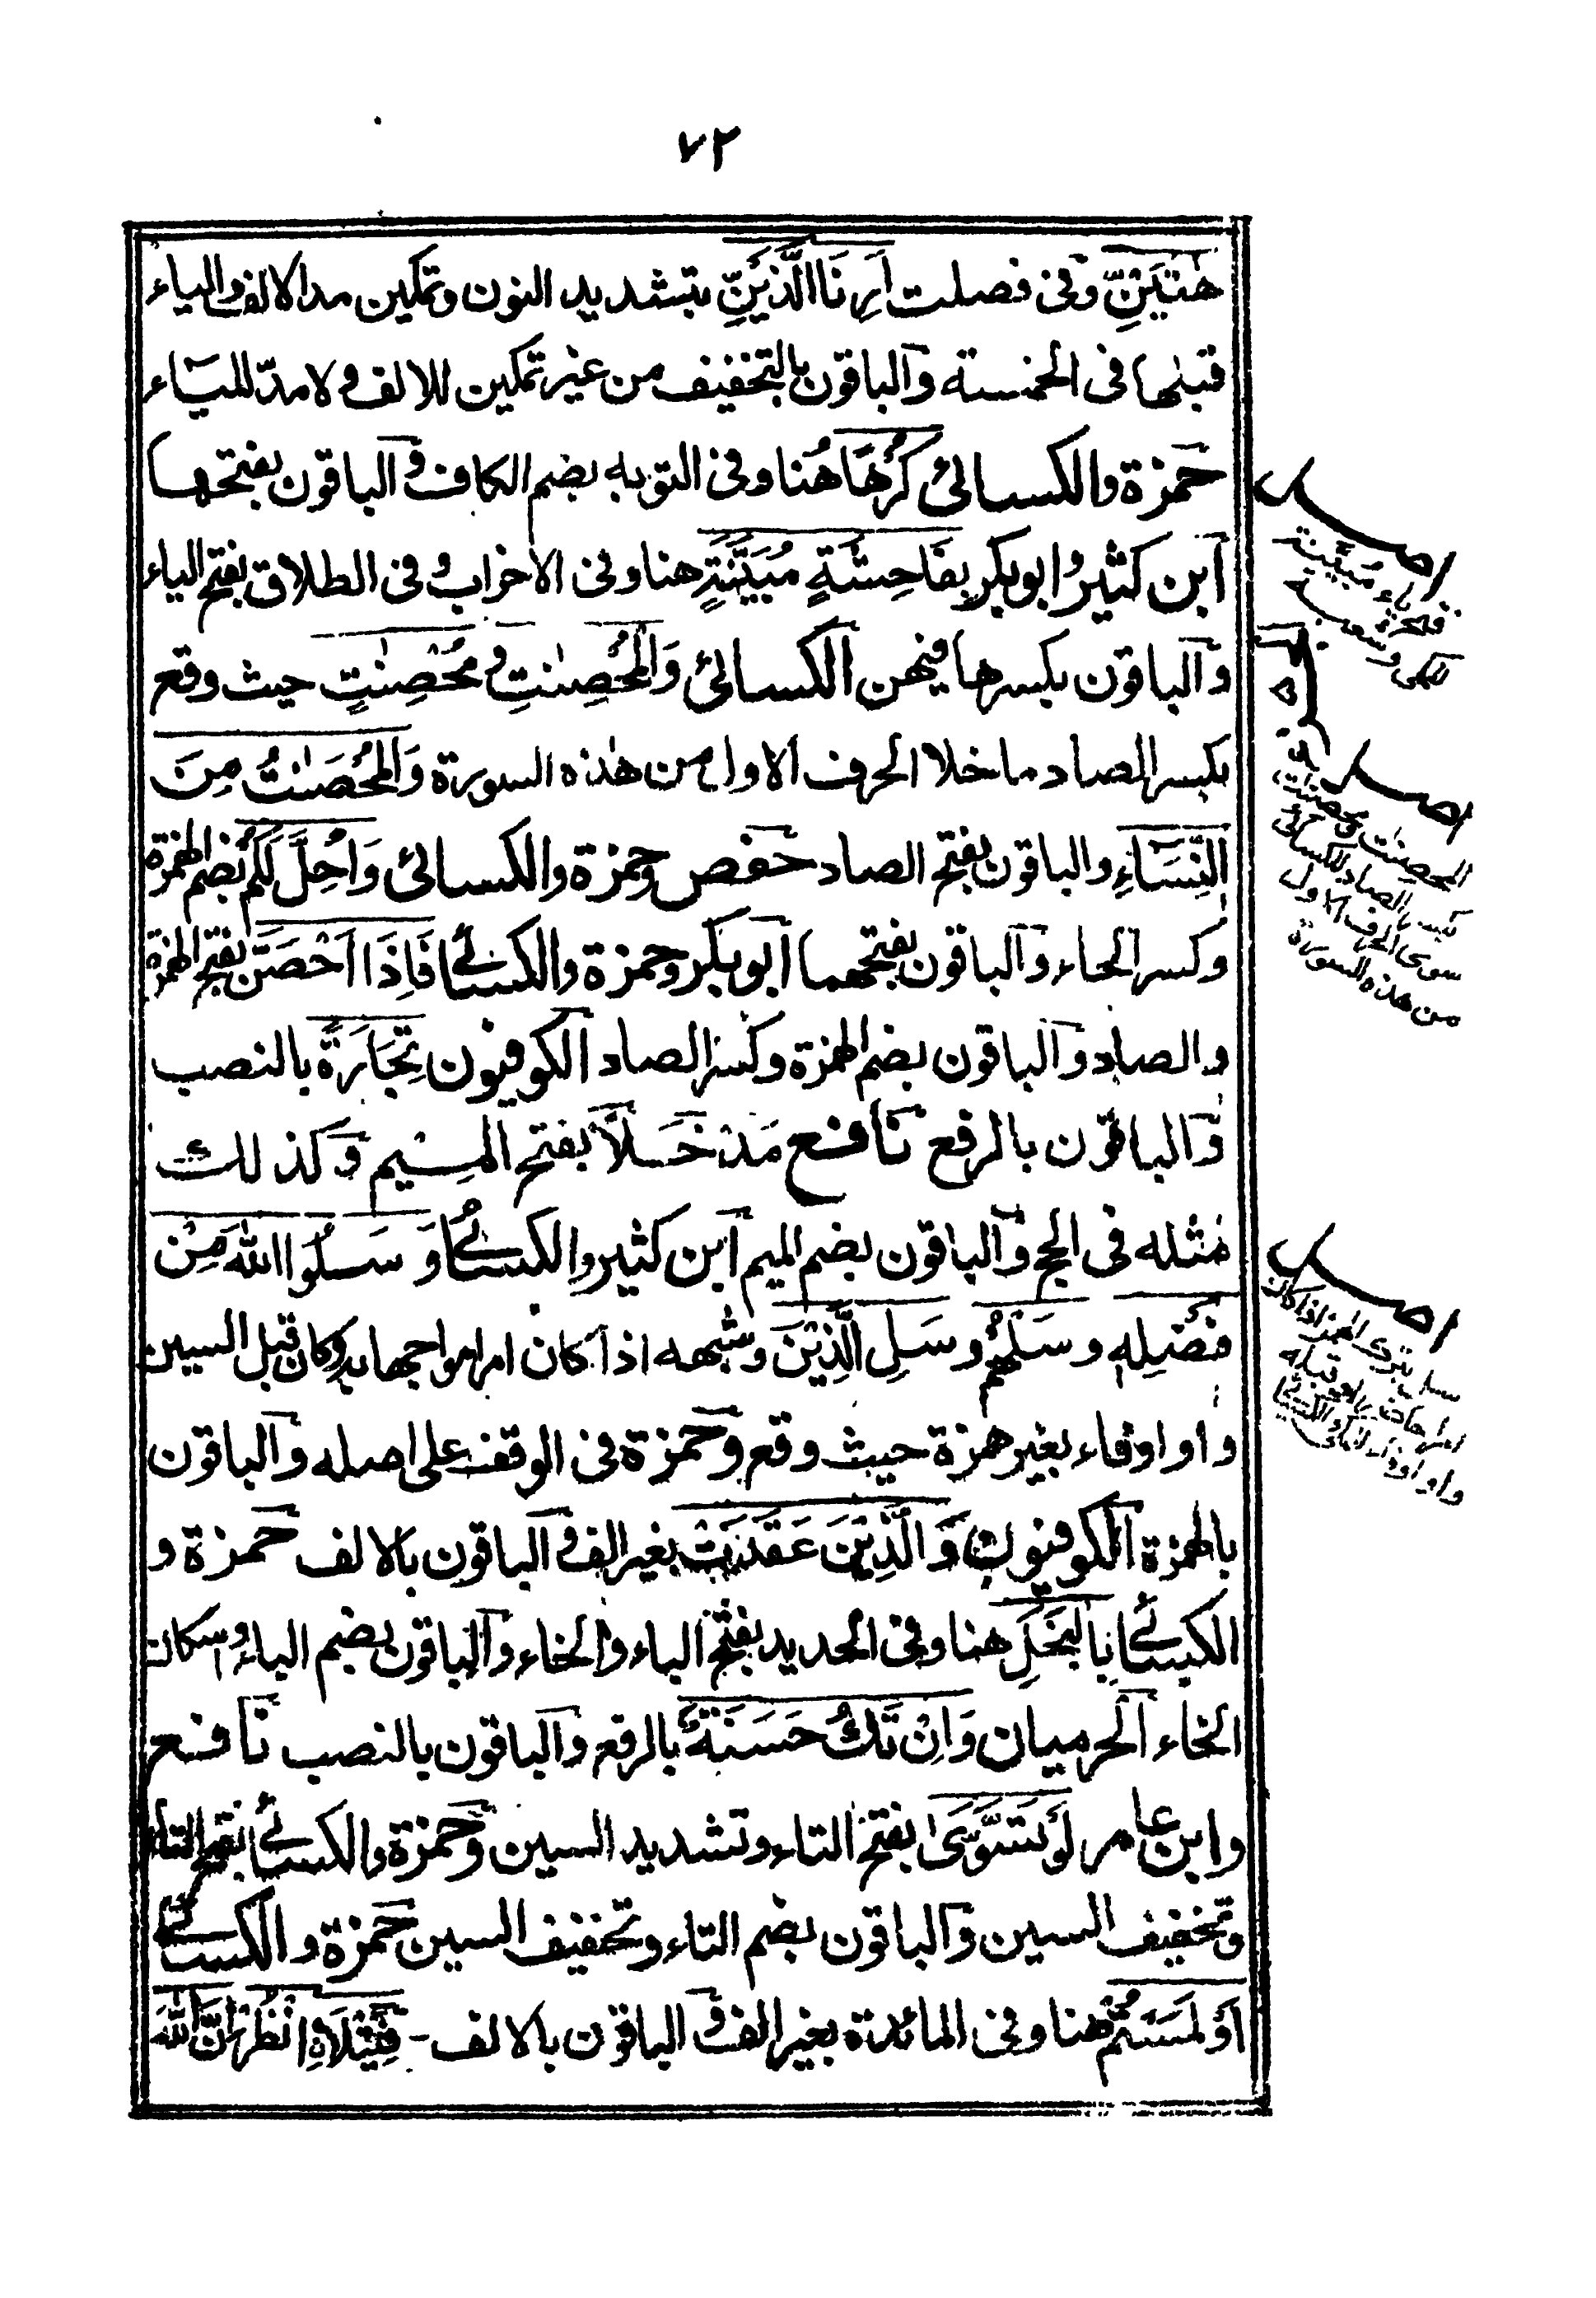 ٧٢
هٰتَيْنِّ وفى فصلت اَرِنَا الَّذَيْنِّ بتشديد النون وتمكين مد الالف والياء
قبلها فى الخمسة والباقون بالتخفيف من غير تمكين للالف ولا مدّ للياء
حمزة والكسائى كُرْهًا هُنا وفى التوبه بضم الكاف والباقون بفتحها
ابن كثير وابوبكر بِفَاحِشَةٍ مُبَيَّنَةٍ هنا وفى الاحزاب وفى الطلاق بفتح الياء
والباقون بكسرها فيهن الكسائى وَالْمُحْصِنٰتِ و مُحْصِنٰتٍ حيث وقع
بكسر الصاد ما خلا الحرف الاول من هذه السورة وَالْمُحْصَنٰتُ مِنَ
النِّسَآءِ والباقون بفتح الصاد حفص وحمزة والكسائى وَاُحِلَّ لَكُمْ بضم الهمزة
وكسر الحاء والباقون بفتحهما ابوبكر وحمزة والكسائى فَاِذَا اَحْصَنَّ بفتح الهمزة
والصاد والباقون بضم الهمزة وكسر الصاد الكوفيون تِجَارَةً بالنصب
والباقون بالرفع نافع مَدْخَلًا بفتح الميم وكذلك
مثله فى الحج والباقون بضم الميم ابن كثير والكسائى وَ سَلُوا اللّٰهَ مِنْ
فَضْلِهٖ وَسَلْهُمْ وَسَلِ الَّذِيْنَ وشبهه اذا كان امرا مواجها به وكان قبل السين
واو او فاء بغير همزة حيث وقع وحمزة فى الوقف على اصله والباقون
بالهمزة الكوفيون وَالَّذِيْنَ عَقَدَتْ بغير الف والباقون بالالف حمزة و
الكسائى بِالْبَخَلِ هنا وفى الحديد بفتح الباء والخاء والباقون بضم الباء واسكان
الخاء الحرميان وَاِنْ تَكُ حَسَنَةٌ بالرفع والباقون بالنصب نافع
وابن عامر لَوْ تَسَّوّٰى بفتح التاء وتشديد السين وحمزة والكسائى بفتح التاء
وتخفيف السين والباقون بضم التاء وتخفيف السين حمزة والكسائى
اَوْ لَمَسْتُمْ هنا وفى المائدة بغير الف والباقون بالالف - فَتِيْلَاۨ انْظُرْ اَنِ اللّٰهَ
اصل
ياء مبينة
اصل
المحصنات ومحصنات
بكسر الصاد للكسائى
سوى الحرف الاول
من هذه السورة
اصل